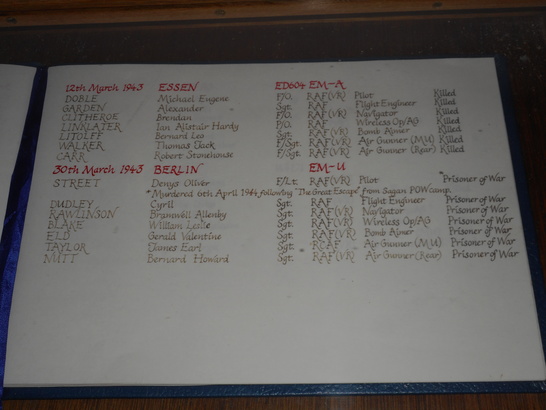 12th March 1943 ESSEN ED604 EM-A
DOBLE Michael Eugene F/O. RAF(VR) Pilot Killed
GARDEN Alexander Sgt. RAF Flight Engineer Killed
CLITHEROE Brendan F/O. RAF(VR) Navigator Killed
LINKLATER Ian Alistair Hardy P/O. RAF Wireless Op/AG Killed
LITOLFF Bernard Leo Sgt. RAF(VR) Bomb Aimer Killed
WALKER Thomas Jack F/Sgt. RAF(VR) Air Gunner (MU) Killed
CARR Robert Stonehouse F/Sgt. RAF(VR) Air Gunner (Rear) Killed
30th March 1943 BERLIN EM-U
STREET Denys Oliver F/Lt. RAF(VR) Pilot *Prisoner of War
*Murdered 6th April 1944, following "The Great Escape" from Sagan POW camp.
DUDLEY Cyril Sgt. RAF Flight Engineer Prisoner of War
RAWLINSON Bramwell Allenby Sgt. RAF(VR) Navigator Prisoner of War
BLAKE William Leslie Sgt. RAF(VR) Wireless Op/AG Prisoner of War
ELD Gerald Valentine Sgt. RAF(VR) Bomb Aimer Prisoner of War
TAYLOR James Earl Sgt. RCAF Air Gunner (MU) Prisoner of War
NUTT Bernard Howard Sgt. RAF(VR) Air Gunner (Rear) Prisoner of War